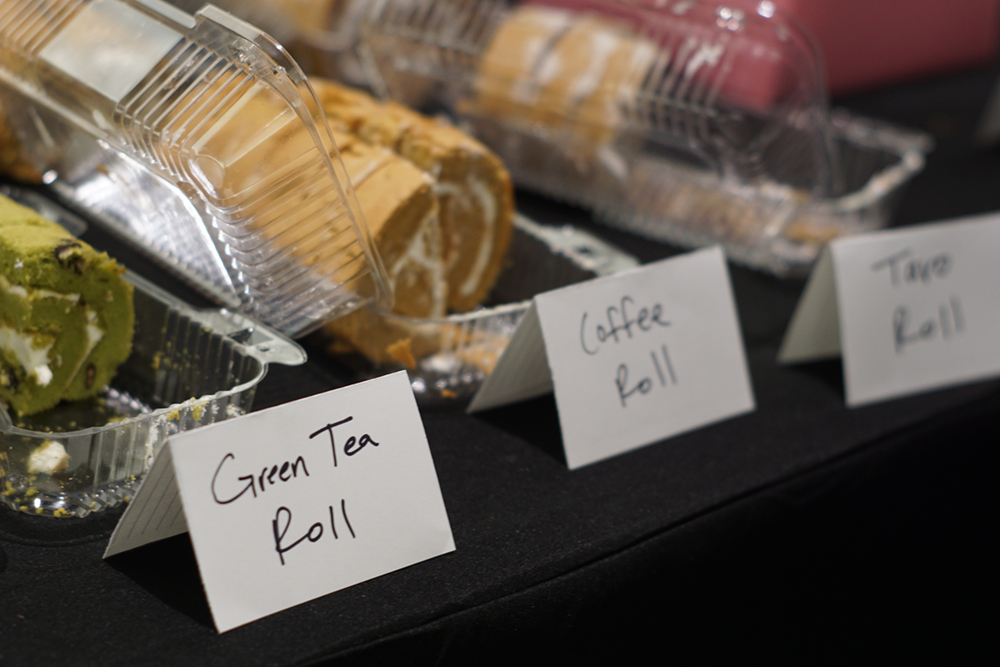 Green Tea
Roll
Coffee
Roll
Taro
Roll